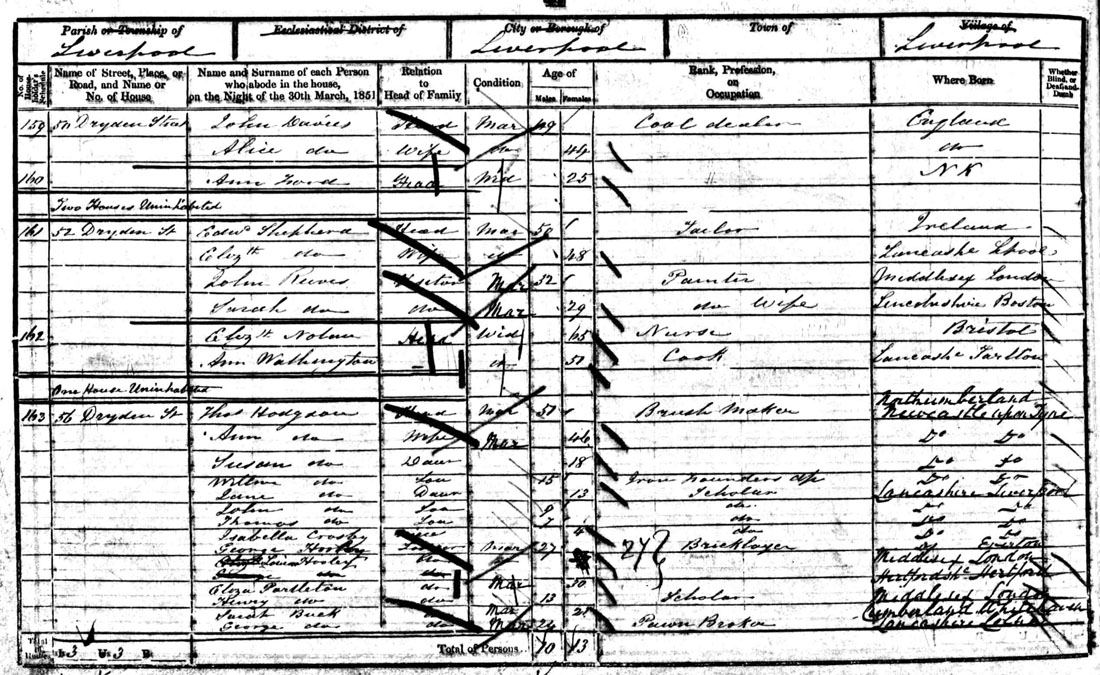 Parish or Township of Ecclesiastical District of City or Borough of Town of Village of
Liverpool Liverpool Liverpool
No. of House-holder's Schedule Name of Street, Place, or Road, and Name or No. of House Name and Surname of each Person who abode in the house, on the Night of the 30th March, 1851 Relation to Head of Family Condition Age of Males Females Rank, Profession, or Occupation Where Born Whether Blind, or Deaf-and-Dumb
159 50 Dryden Street John Davies Head Mar 49 Coal dealer England
Alice do Wife do 44 do
160 Ann Ford Head Wid 25 " NK
Two Houses Uninhabited
161 52 Dryden St Edwd Shepherd Head Mar 50 Tailor Ireland
Elizth do Wife do 48 Lancashe Lpool
John Reeves Visitor Mar 52 Painter Middlesex London
Sarah do do Mar 29 do Wife Lincolnshire Boston
162 Elizth Nolan Head Wid 65 Nurse Bristol
Ann Wathington do 50 Cook Lancashe
One House Uninhabited
163 56 Dryden St Thos Hodgson Head Mar 50 Brush Maker Northumberland Newcastle upon Tyne
Ann do Wife Mar 46 Do Do
Susan do Daur 18 Do Do
Willm do Son 15 Iron Do Do
Jane do Daur 13 Scholar Lancashire Liverpool
John do Son 9 do Do Do
Thomas do Son 7 do Do Do
Isabella Crosby 4 Do
George Mar 27 Bricklayer Everton
Louisa do 24 Middlesex London
do do Hertfordsh Hertford
Eliza do Mar 30
Henry do do 13 Scholar Middlesex London
Sarah Buck Mar 21 Cumberland Whitehaven
George do do Mar 24 Pawn Broker Lancashire
Total of Houses I 3 U 3 B Total of Persons 10 13